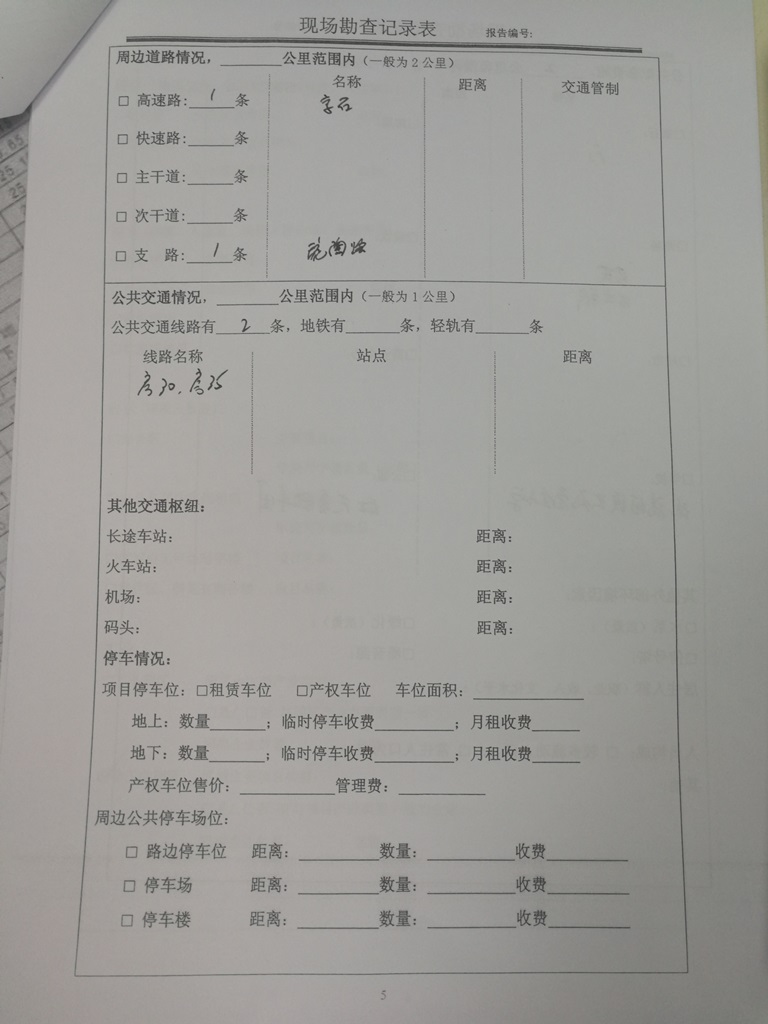 现场勘查记录表 报告编号:
周边道路情况，________公里范围内（一般为2公里）
名称 距离 交通管制
□ 高速路:__1__条 京石
□ 快速路:_____条
□ 主干道:_____条
□ 次干道:_____条
□ 支 路:__1__条
公共交通情况，________公里范围内（一般为1公里）
公共交通线路有__2__条，地铁有______条，轻轨有______条
线路名称 站点 距离
房30、房35
其他交通枢纽：
长途车站： 距离：
火车站： 距离：
机场： 距离：
码头： 距离：
停车情况：
项目停车位：□租赁车位 □产权车位 车位面积：____________
地上：数量______；临时停车收费________；月租收费_____
地下：数量______；临时停车收费________；月租收费_____
产权车位售价：__________管理费：_________
周边公共停车场位：
□ 路边停车位 距离：________数量：_________收费________
□ 停车场 距离：________数量：_________收费________
□ 停车楼 距离：________数量：_________收费________
5